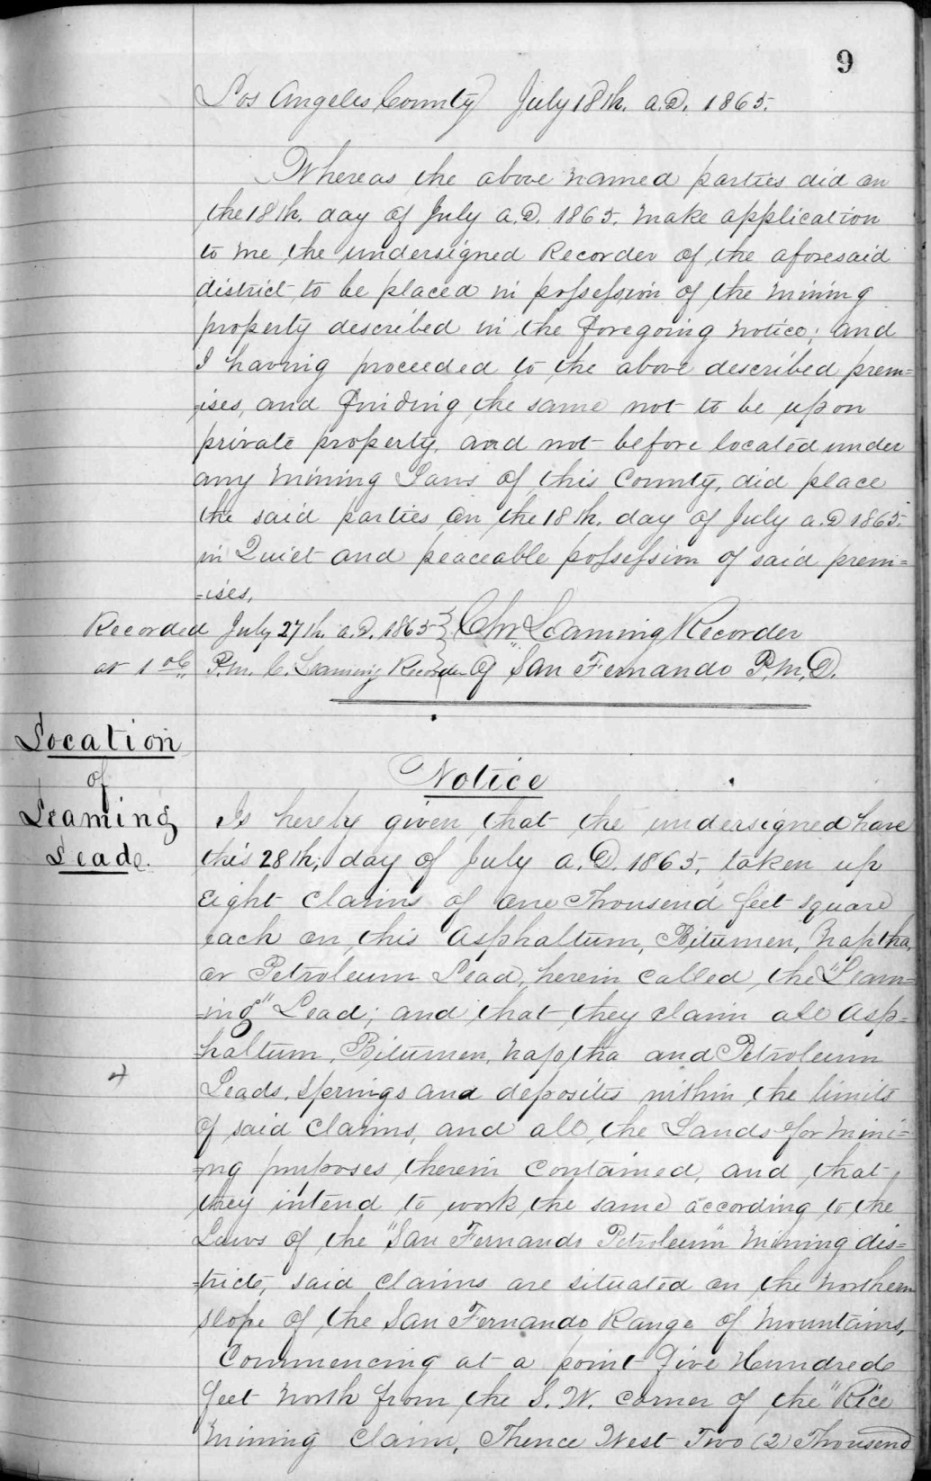 9
Los Angeles County July 18th. A.D. 1865.
Whereas the above named parties did on
the 18th. day of July A.D. 1865. make application
to me the undersigned Recorder of the aforesaid
district, to be placed in possession of the mining
property described in the foregoing notice; and
I having proceeded to the above described prem=
ises, and finding the same not to be upon
private property, and not before located under
any mining Laws of this County, did place
the said parties on the 18th. day of July A.D 1865.
in Quiet and peaceable possession of said prem=
=ises.
Recorded July 27th. A.D. 1865 } Chr Leaming Recorder
at 1 oC P.M. C. Leaming Recorder of San Fernando P.M.D.
Location
of
Leaming
Leade.
Notice
Is hereby given that the undersigned have
this 28th, day of July A.D. 1865, taken up
Eight Claims of one Thousend feet square
each on this Asphaltum, Bitumen, Naptha,
or Petroleum Lead, herein called the "Leam=
=ing" Lead; and that they claim all Asp=
=haltum, Bitumen, Naptha and Petroleum
Leads, Springs and deposites within the limits
of said Claims, and all the Lands for mini=
=ng purposes therein contained, and that
they intend to work the same according to the
Laws of the "San Fernando Petroleum" Mining dis=
=trict, said claims are situated on the Northern
slope of the San Fernando Range of Mountains,
Commencing at a point Five Hundred
feet North from the S. W. corner of the "Rice"
Mining Claim, Thence West Two (2) Thousend